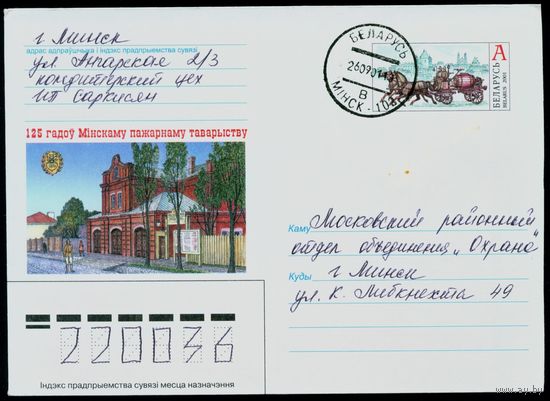 г Минск
адрас адпраўшчыка і індэкс прадпрыемства сувязі
ул Ангарская 2/3
кондитерский цех
ИП Саркисян
125 гадоў Мінскаму пажарнаму таварыству
БЕЛАРУСЬ
260901
В
МІНСК - 103
А
БЕЛАРУСЬ
BELARUS 2001
Каму Московский районный
отдел объединения „Охрана"
Куды г Минск
ул. К. Либкнехта 49
220036
Індэкс прадпрыемства сувязі месца назначэння
www.ay.by